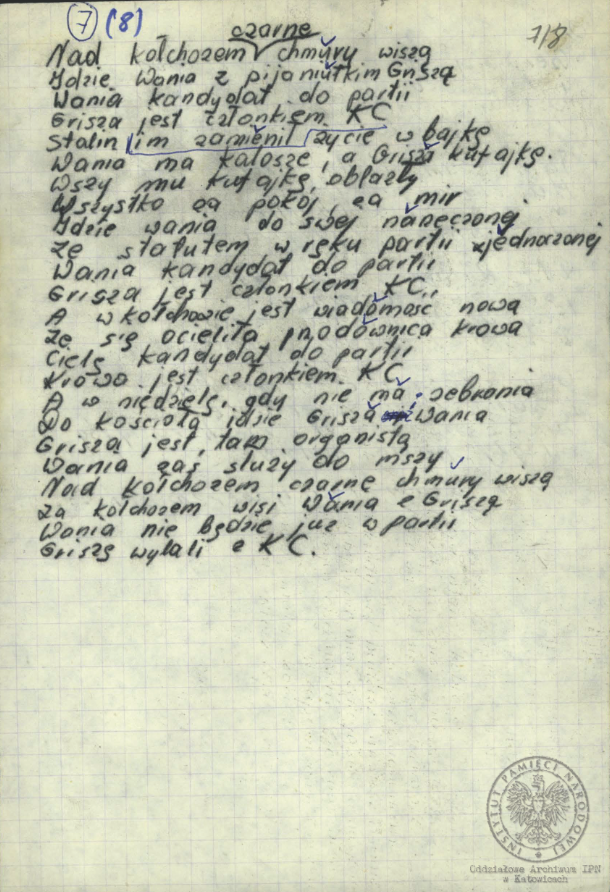 7 (8) 7/8
czarne
Nad kołchozem chmury wiszą
Idzie Wania z pijaniutkim Griszą
Wania kandydat do partii
Grisza jest członkiem KC
Stalin im zamienił życie w bajkę
Wania ma kalosze, a Grisza kufajkę.
Wszy mu kufajkę oblazły
Wszystko za pokój, za mir
Idzie wania do swej nareczonej
Ze statutem w ręku partii zjednoczonej
Wania kandydat do partii
Grisza jest członkiem KC,,
A w kołchozie jest wiadomość nowa
Że się ocieliła przodownica krowa
Cielę kandydat do partii
Krowa jest członkiem KC
A w niedzielę, gdy nie ma zebrania
Do kościoła idzie Grisza Wania
Grisza jest tam organistą
Wania zaś służy do mszy
Nad kołchozem czarne chmury wiszą
Za kołchozem wisi Wania z Griszą
Wania nie będzie już w partii
Griszę wylali z KC.
INSTYTUT PAMIĘCI NARODOWEJ
Oddziałowe Archiwum IPN
w Katowicach